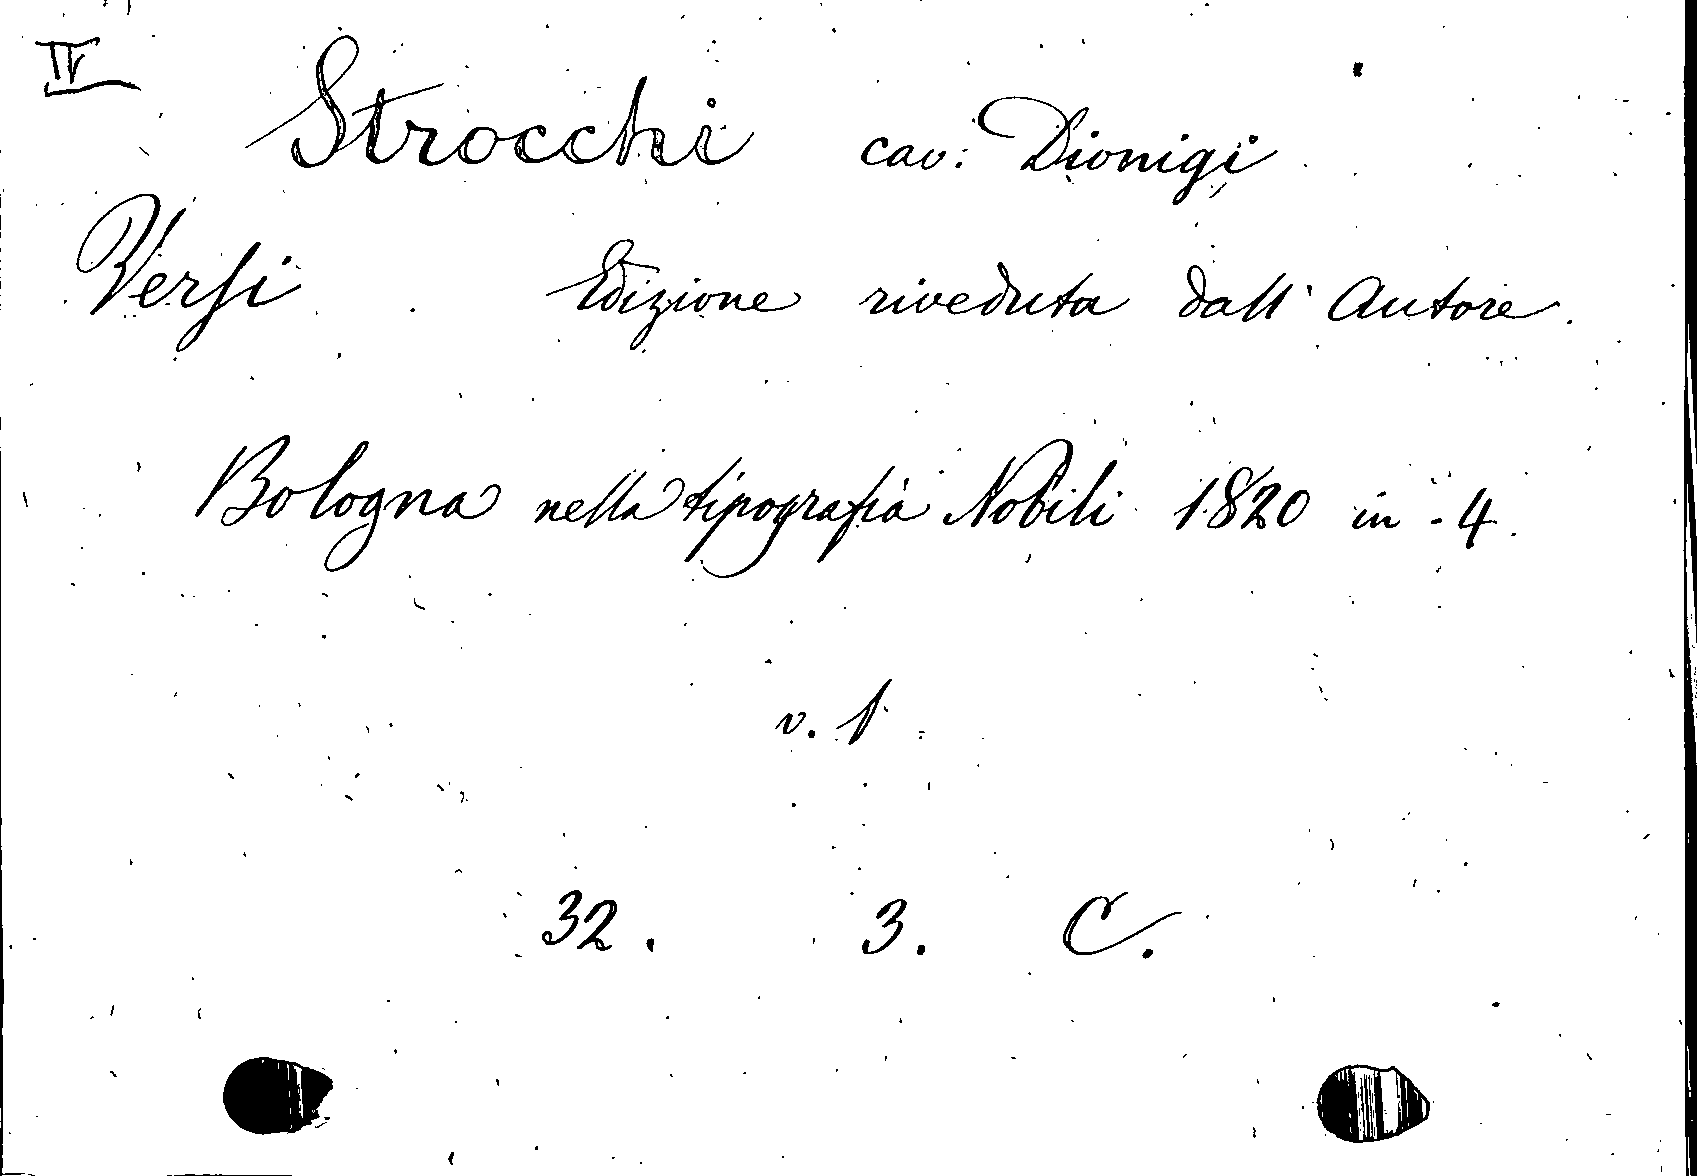 IV
Strocchi cav: Dionigi
Versi Edizione riveduta dall' Autore.
Bologna nella tipografia Nobili 1820 in-4.
v. 1
32. 3. C.